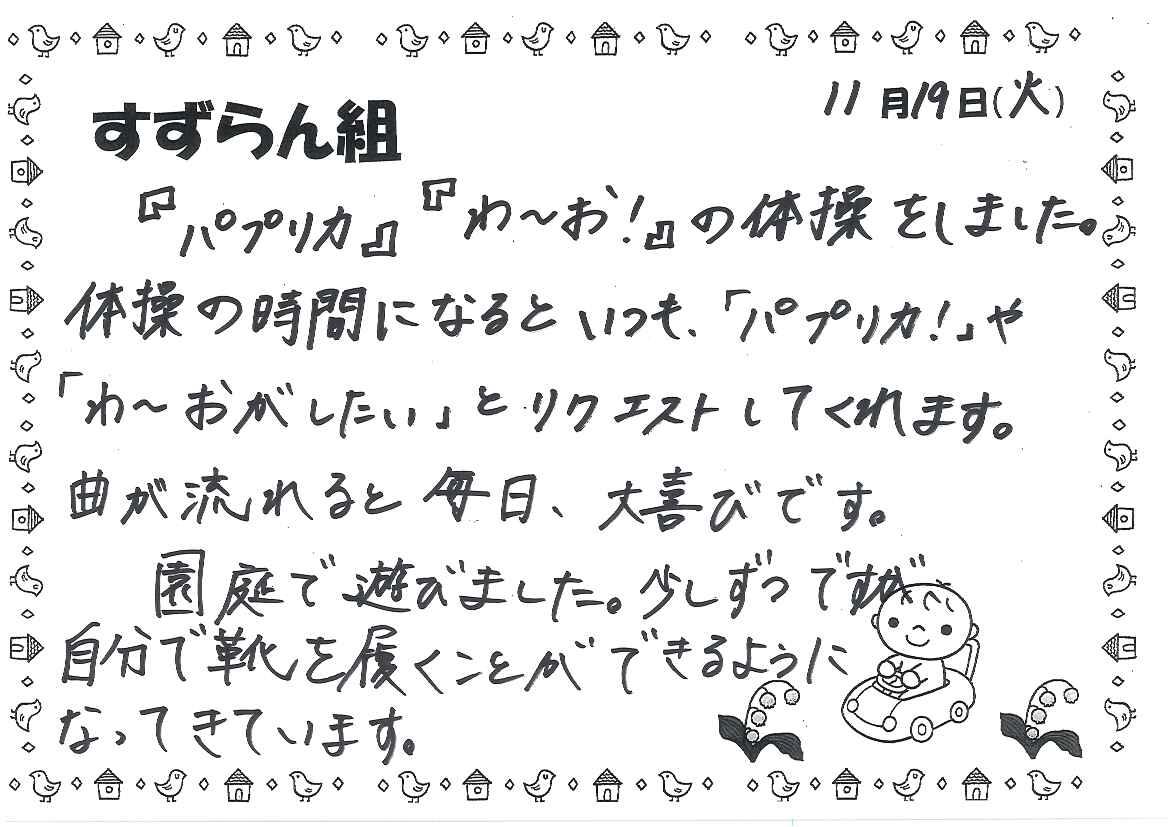 11月19日(火)
すずらん組
『パプリカ』『わ～お!』の体操をしました。
体操の時間になるといつも、「パプリカ!」や
「わ～おがしたい」とリクエストしてくれます。
曲が流れると毎日、大喜びです。
園庭で遊びました。少しずつですが
自分で靴を履くことができるように
なってきています。